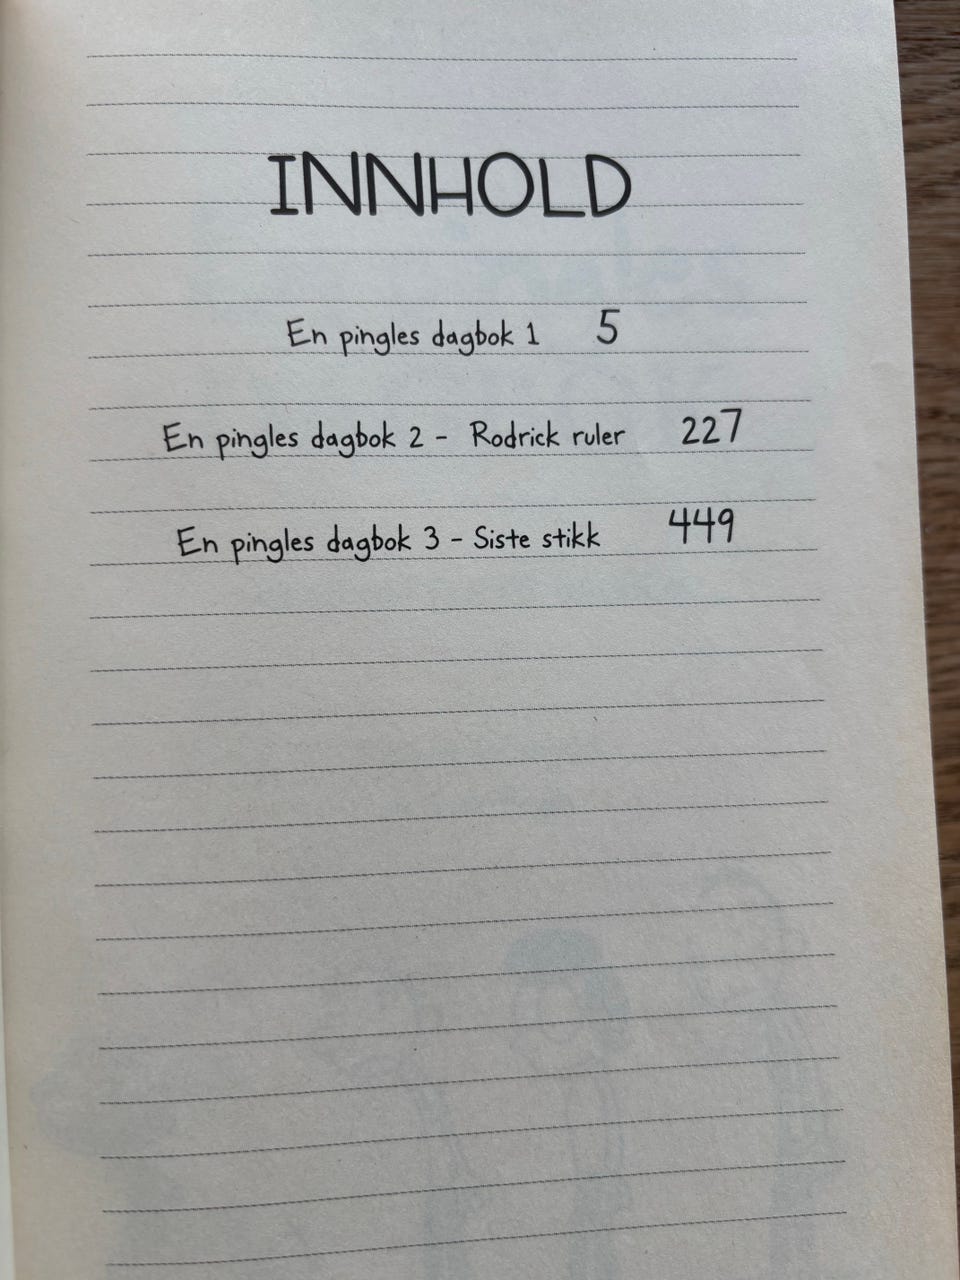 INNHOLD
En pingles dagbok 1 5
En pingles dagbok 2 - Rodrick ruler 227
En pingles dagbok 3 - Siste stikk 449